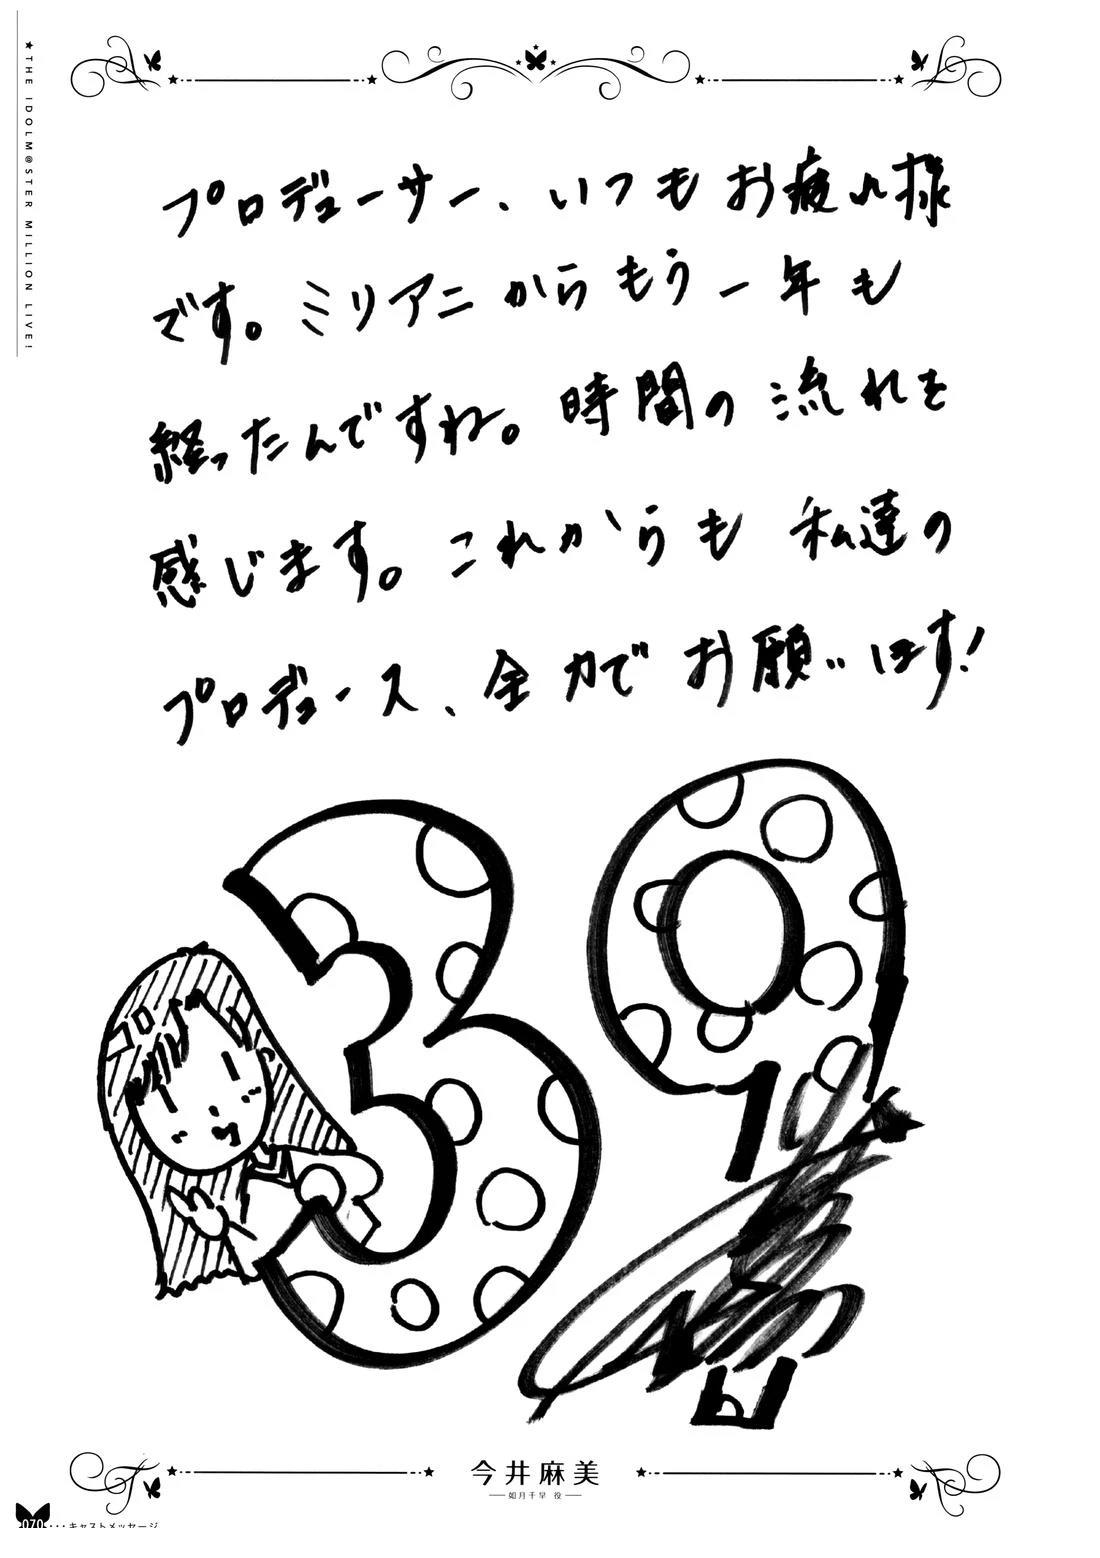 ★THE IDOLM@STER MILLION LIVE!
プロデューサー、いつもお疲れ様
です。ミリアニからもう一年も
経ったんですね。時間の流れを
感じます。これからも私達の
プロデュース、全力でお願いします!
39
今井麻美
如月千早 役
070・・・キャストメッセージ